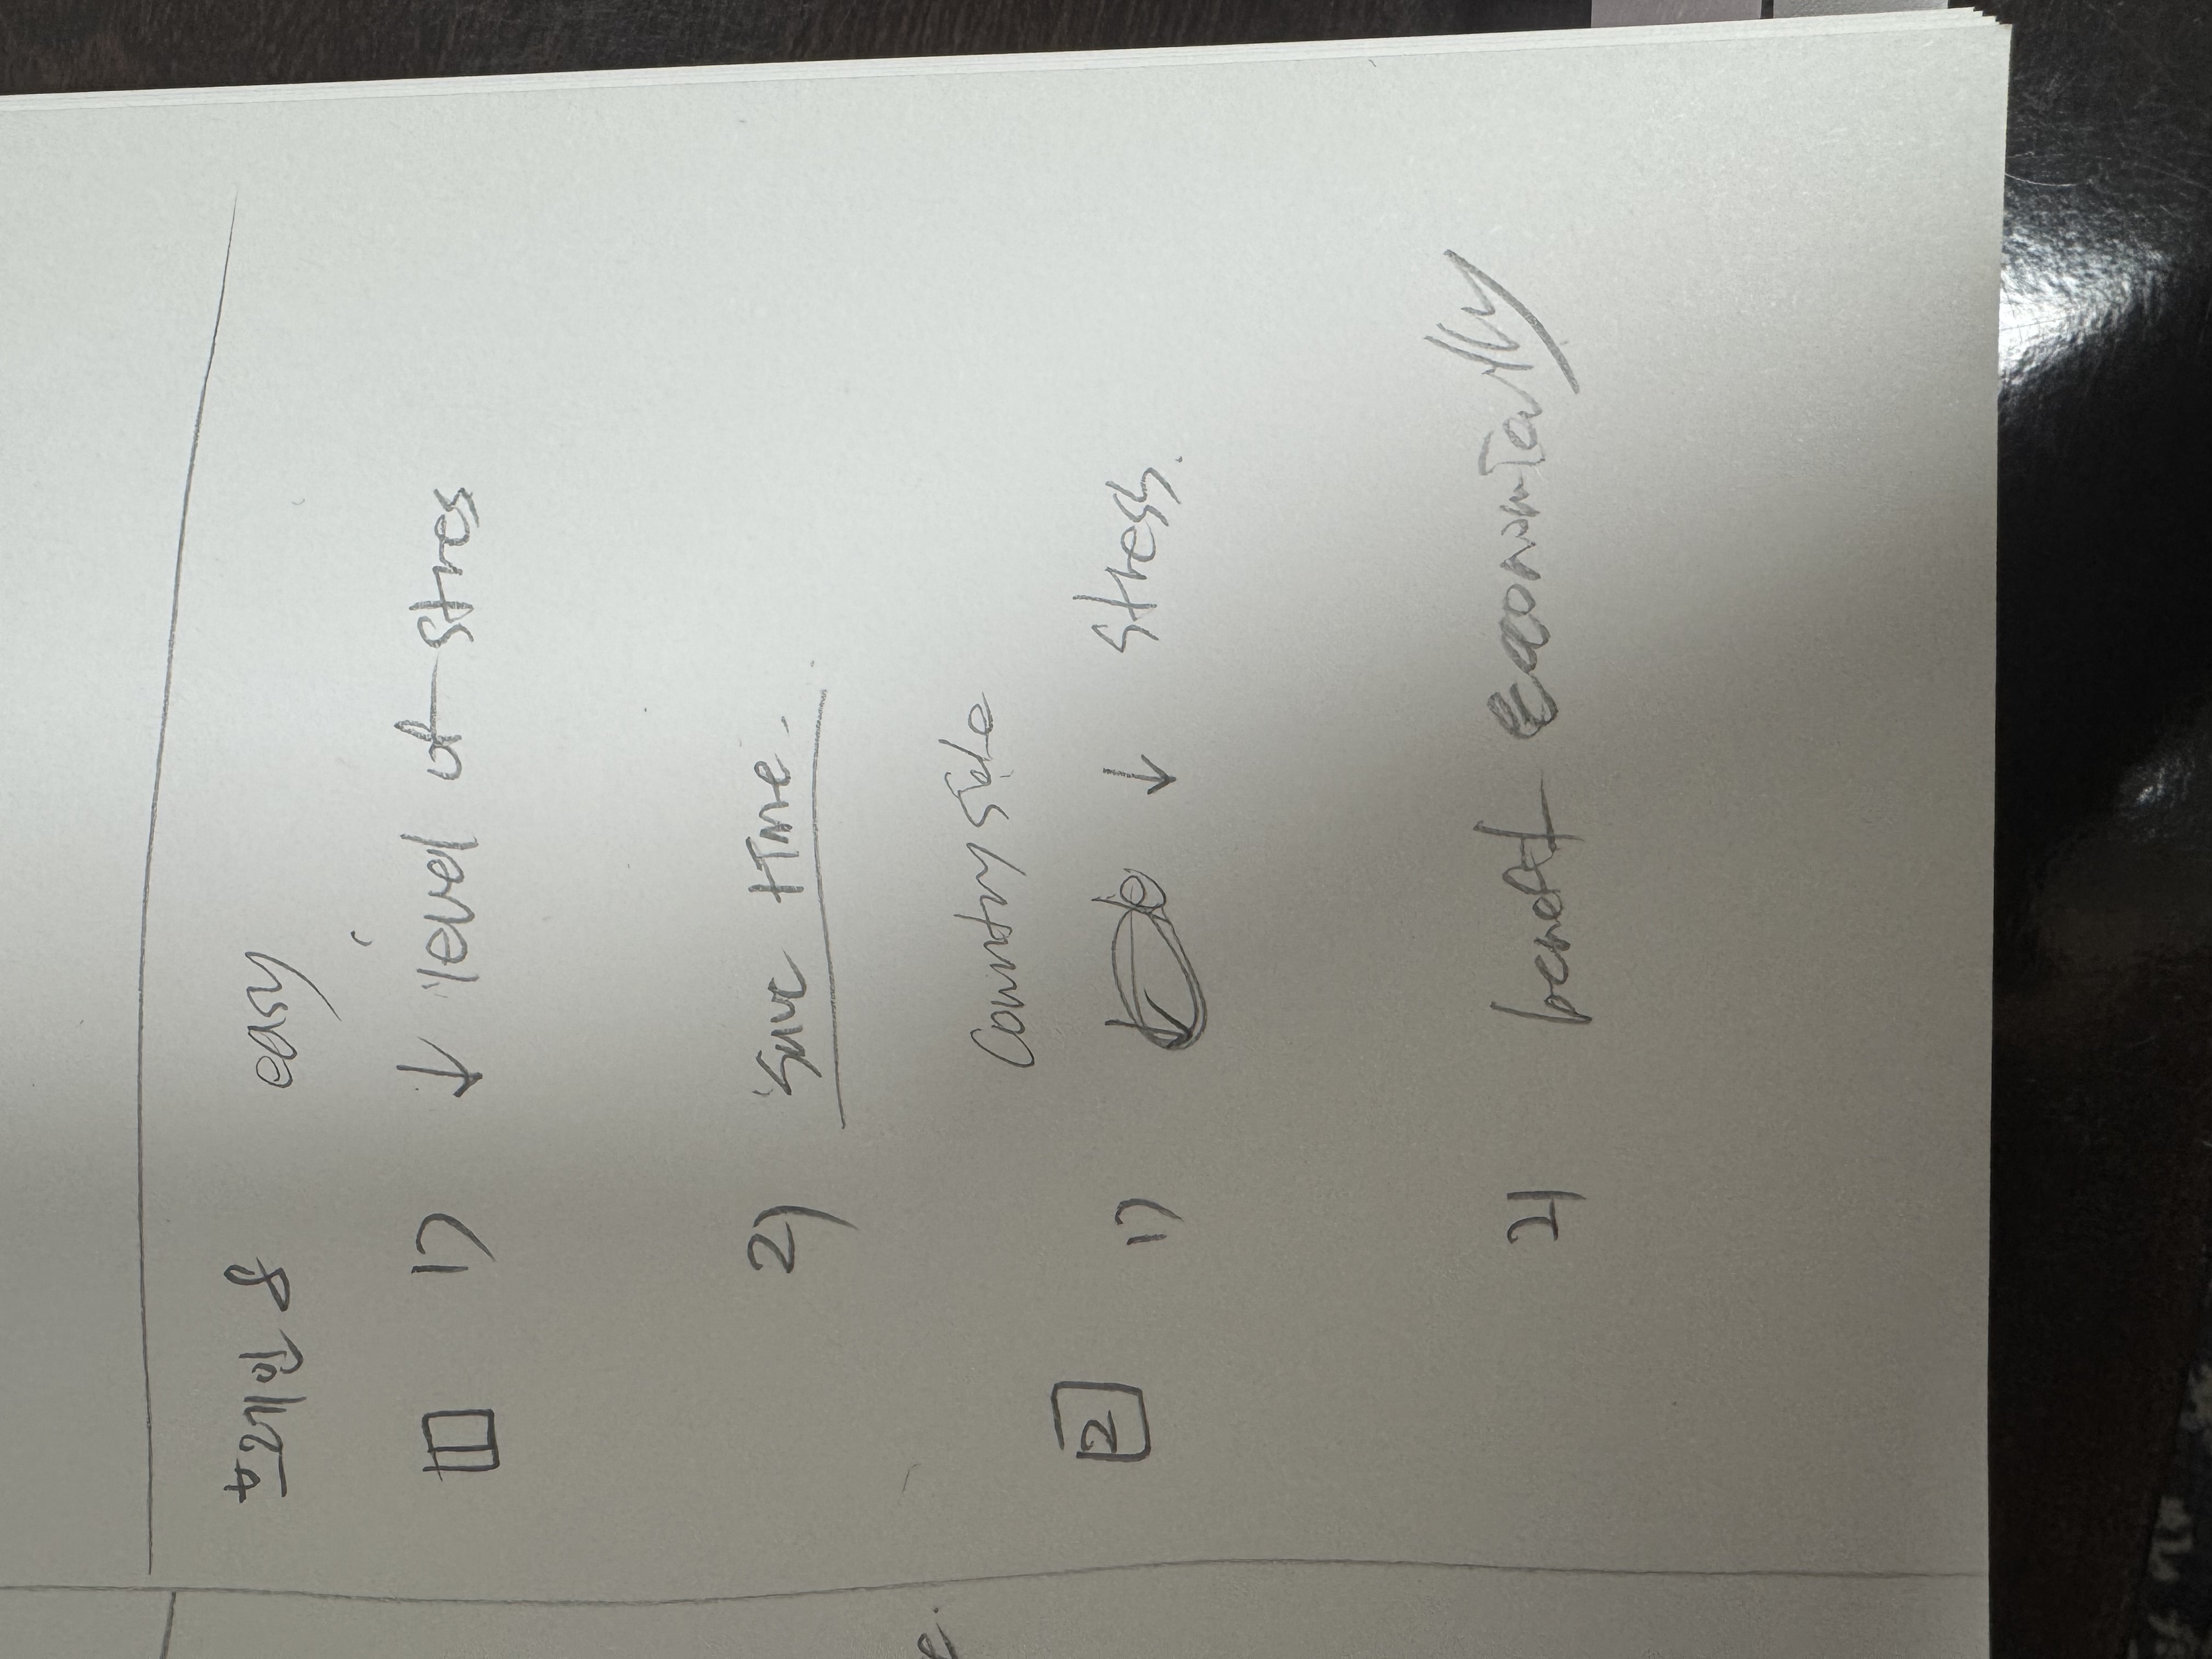 프레임 8 easy
1) ↓ level of stress
2) save time.
countryside
2 1) ↓ stress.
2) benefit economically